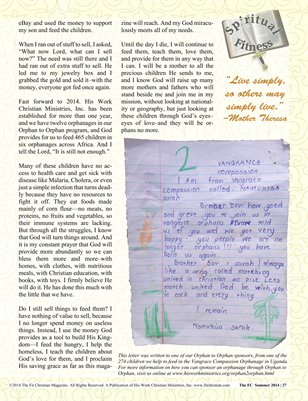 eBay and used the money to support
my son and feed the children.
When I ran out of stuff to sell, I asked,
"What now Lord, what can I sell
now?" The need was still there and I
had ran out of extra stuff to sell. He
led me to my jewelry box and I
grabbed the gold and sold it -with the
money, everyone got fed once again.
Fast forward to 2014. His Work
Christian Ministries, Inc. has been
established for more than one year,
and we have twelve orphanages in our
Orphan to Orphan program, and God
provides for us to feed 465 children in
six orphanages across Africa. And I
tell the Lord, "It is still not enough."
Many of these children have no ac-
cess to health care and get sick with
disease like Malaria, Cholera, or even
just a simple infection that turns dead-
ly because they have no resources to
fight it off. They eat foods made
mainly of corn flour—no meats, no
proteins, no fruits and vegetables, so
their immune systems are lacking.
But through all the struggles, I know
that God will turn things around. And
it is my constant prayer that God will
provide more abundantly so we can
bless them more and more-with
homes, with clothes, with nutritious
meals, with Christian education, with
books, with toys. I firmly believe He
will do it. He has done this much with
the little that we have.
Do I still sell things to feed them? I
have nothing of value to sell, because
I no longer spend money on useless
things. Instead, I use the money God
provides as a tool to build His King-
dom—I feed the hungry, I help the
homeless, I teach the children about
God's love for them, and I proclaim
His saving grace as far as this maga-
zine will reach. And my God miracu-
lously meets all of my needs.
Until the day I die, I will continue to
feed them, teach them, love them,
and provide for them in any way that
I can. I will be a mother to all the
precious children He sends to me,
and I know God will raise up many
more mothers and fathers who will
stand beside me and join me in my
mission, without looking at national-
ity or geography, but just looking at
these children through God's eyes-
eyes of love-and they will be or-
phans no more.
Spiritual
Fitness
"Live simply,
so others may
simply live."
-Mother Theresa
2
VANGRANCE
COMPASSION
I Am From Vangrance
compassion called: NAMUKUSA
Sarah
Brother Dav: have good
and great you to join us in
vangrance orphans
us of you and we got very
happy you people we are no
longer orphans !!! you have
born us again.
Brother Dav: I sarah I always
like a song called marching
united in christian so plse lets
march united God be with you
in each and every thing
I remain
Namukusa Sarah
This letter was written to one of our Orphan to Orphan sponsors, from one of the
274 children we help to feed in the Vangrance Compassion Orphanage in Uganda.
For more information on how you can sponsor an orphanage through Orphan to
Orphan, visit us online at www.hisworkministries.org/orphan2orphan.html
©2014 The Fit Christian Magazine: All Rights Reserved. A Publication of His Work Christian Ministries, Inc. www.thefitchristian.com
The FC Summer 2014 | 27